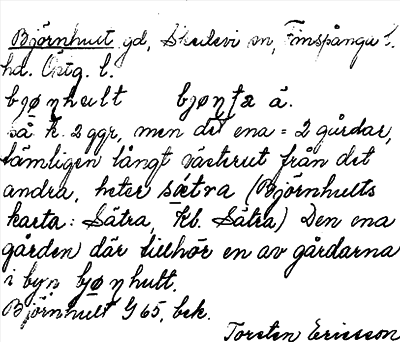 Björnhult gd, Skedevi sn, Finspånga l.
hd. Östg. l.
bjønhult bjøntz ä.
så K. 2 ggr, men det ena = 2 gårdar,
nämligen långt västerut från det
andra, heter sætra (Björnhults
karta: Sätra, Kb. Sätra) Den ena
gården där tillhör en av gårdarna
i byn bjønhult.
Björnhult G 65, bek.
Torsten Ericsson